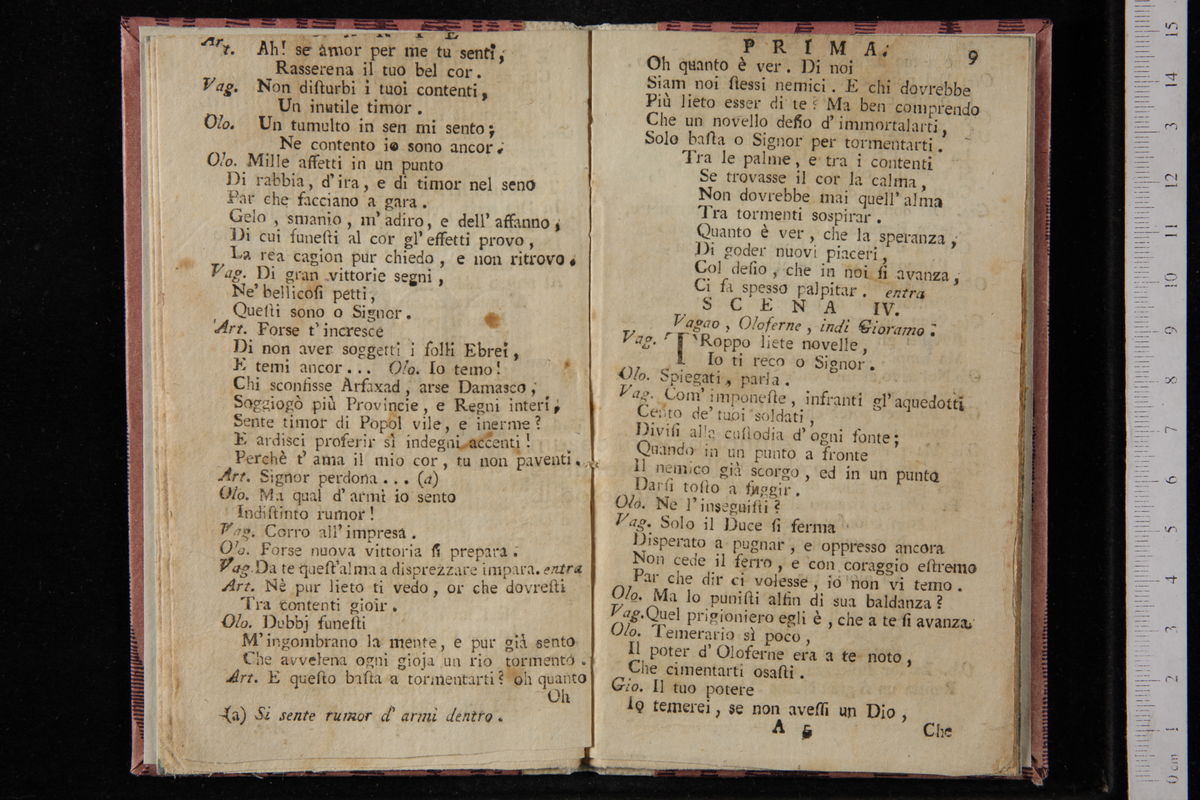 Art. Ah! se amor per me tu senti,
Rasserena il tuo bel cor.
Vag. Non diſturbi i tuoi contenti,
Un inutile timor.
Olo. Un tumulto in sen mi sento;
Ne contento io sono ancor.
Olo. Mille affetti in un punto
Di rabbia, d'ira, e di timor nel seno
Par che facciano a gara.
Gelo, smanio, m'adiro, e dell'affanno,
Di cui funeſti al cor gl'effetti provo,
La rea cagion pur chiedo, e non ritrovo.
Vag. Di gran vittorie segni,
Ne' bellicoſi petti,
Queſti sono o Signor.
Art. Forse t'incresce
Di non aver soggetti i folli Ebrei,
E temi ancor... Olo. Io temo!
Chi sconfisse Arfaxad, arse Damasco,
Soggiogò più Provincie, e Regni interi,
Sente timor di Popol vile, e inerme?
E ardisci proferir sì indegni accenti!
Perchè t'ama il mio cor, tu non paventi.
Art. Signor perdona... (a)
Olo. Ma qual d'armi io sento
Indiſtinto rumor!
Vag. Corro all'impresa.
Olo. Forse nuova vittoria ſi prepara.
Vag. Da te queſt'alma a disprezzare impara. entra
Art. Nè pur lieto ti vedo, or che dovreſti
Tra contenti gioir.
Olo. Dubbj funeſti
M'ingombrano la mente, e pur già sento
Che avvelena ogni gioja un rio tormento.
Art. E queſto baſta a tormentarti? oh quanto
Oh
(a) Si sente rumor d'armi dentro.
PRIMA. 9
Oh quanto è ver. Di noi
Siam noi ſteſsi nemici. E chi dovrebbe
Più lieto esser di te? Ma ben comprendo
Che un novello deſio d'immortalarti,
Solo baſta o Signor per tormentarti.
Tra le palme, e tra i contenti
Se trovasse il cor la calma,
Non dovrebbe mai quell'alma
Tra tormenti sospirar.
Quanto è ver, che la speranza,
Di goder nuovi piaceri,
Col deſio, che in noi ſi avanza,
Ci fa spesso palpitar. entra
SCENA IV.
Vagao, Oloferne, indi Gioramo.
Vag. TRoppo liete novelle,
Io ti reco o Signor.
Olo. Spiegati, parla.
Vag. Com'imponeſte, infranti gl'aquedotti
Cento de' tuoi soldati,
Diviſi alla cuſtodia d'ogni fonte;
Quando in un punto a fronte
Il nemico già scorgo, ed in un punto
Darſi toſto a fuggir.
Olo. Ne l'inseguiſti?
Vag. Solo il Duce ſi ferma
Disperato a pugnar, e oppresso ancora
Non cede il ferro, e con coraggio eſtremo
Par che dir ci volesse, io non vi temo.
Olo. Ma lo puniſti alfin di sua baldanza?
Vag. Quel prigioniero egli è, che a te ſi avanza.
Olo. Temerario sì poco,
Il poter d'Oloferne era a te noto,
Che cimentarti osaſti.
Gio. Il tuo potere
Io temerei, se non aveſſi un Dio,
A 5 Che